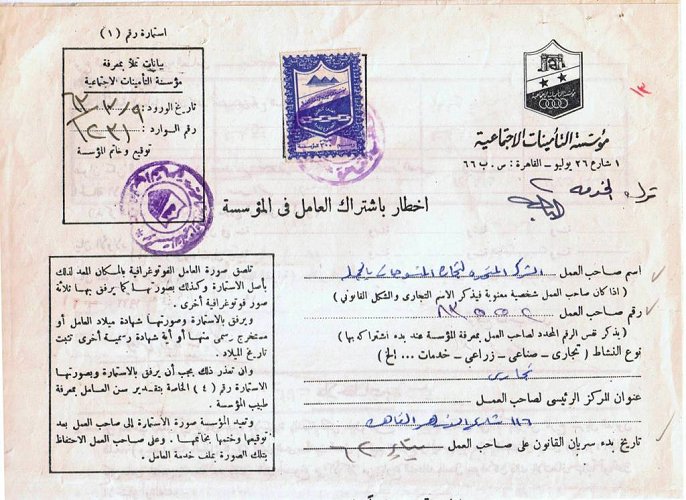 استمارة رقم (١)
بيانات تملأ بمعرفة
مؤسسة التأمينات الاجتماعية
تاريخ الورود:
رقم الوارد:
توقيع وخاتم المؤسسة
مؤسسة التأمينات الاجتماعية
١ شارع ٢٦ يوليو - القاهرة: ص. ب ٦٦
اخطار باشتراك العامل فى المؤسسة
اسم صاحب العمل الشركة المتحدة لتجارة المنسوجات بالجملة
(اذا كان صاحب العمل شخصية معنوية فيذكر الاسم التجارى والشكل القانونى)
رقم صاحب العمل
(يذكر نفس الرقم المحدد لصاحب العمل بمعرفة المؤسسة عند بدء اشتراكه بها)
نوع النشاط (تجارى - صناعى - زراعى - خدمات ... الخ)
تجارى
عنوان المركز الرئيسى لصاحب العمل
١١٦ شارع الازهر القاهرة
تاريخ بدء سريان القانون على صاحب العمل
تلصق صورة العامل الفوتوغرافية بالمكان المعد لذلك
بأصل الاستمارة وكذلك بصورتها كما يرفق بها ثلاثة
صور فوتوغرافية أخرى .
ويرفق بالاستمارة وصورتها شهادة ميلاد العامل أو
مستخرج رسمى منها أو أية شهادة رسمية أخرى تثبت
تاريخ الميلاد .
وان تعذر ذلك يجب أن يرفق بالاستمارة وبصورتها
الاستمارة رقم (٤) الخاصة بتقدير سن العامل بمعرفة
طبيب المؤسسة .
وتعيد المؤسسة صورة الاستمارة الى صاحب العمل بعد
توقيعها وختمها بخاتمها . وعلى صاحب العمل الاحتفاظ
بتلك الصورة بملف خدمة العامل .